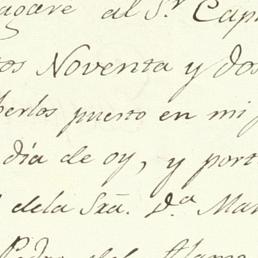 pagare al S.r Cap
tos Noventa y dos
berlos puesto en mi p
dia de oy, y port
dela Sra. D.a Mar
Pedro del Alamo